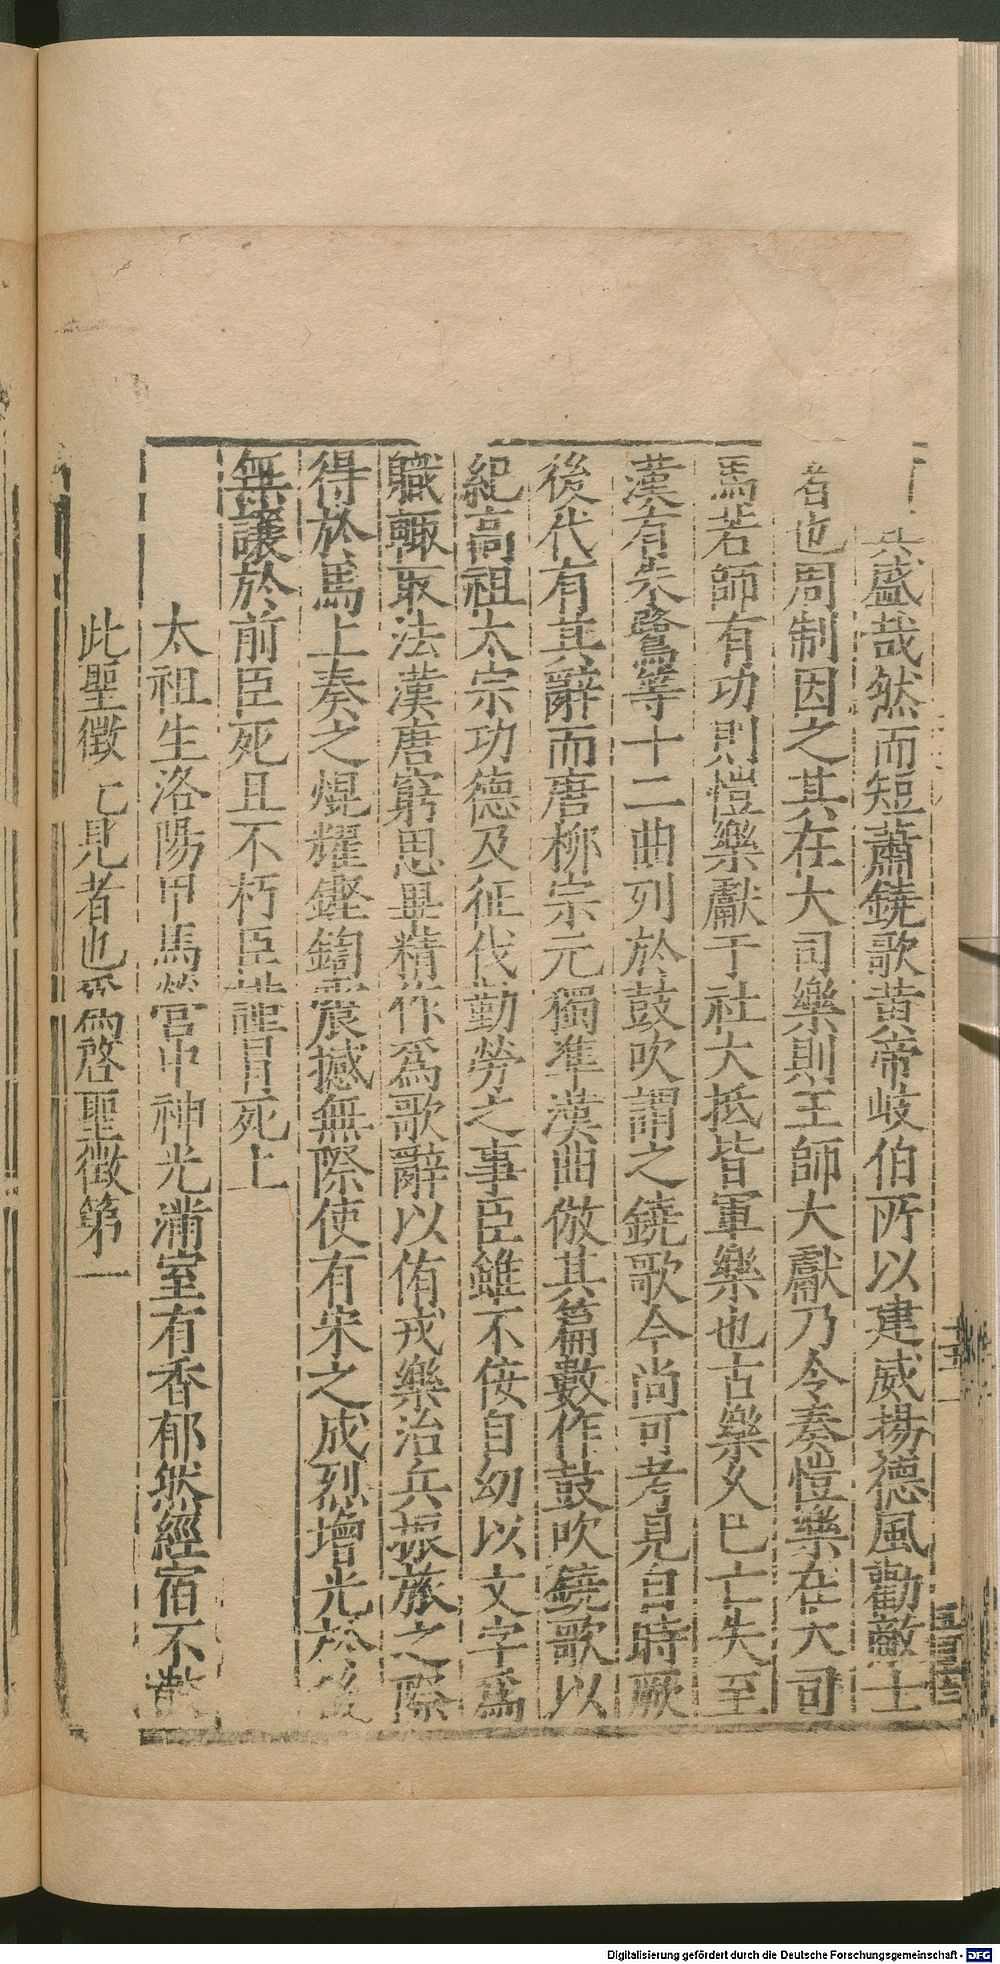 其盛哉然而短蕭鐃歌黃帝岐伯所以建威揚德風勸敵士
者也周制因之其在大司樂則王師大獻乃令奏愷樂在大司
馬若師有功則愷樂獻于社大抵皆軍樂也古樂久已亡失至
漢有朱鷺等十二曲列於鼓吹謂之鐃歌今尚可考見自時厥
後代有其辭而唐柳宗元獨準漢曲倣其篇數作鼓吹鐃歌以
紀高祖太宗功德及征伐勤勞之事臣雖不佞自幼以文字爲
職輙取法漢唐窮思畢精作爲歌辭以侑戎樂治兵振旅之際
得於馬上奏之焜耀鏗鍧震撼無際使有宋之成烈增光於後
無讓於前臣死且不朽臣謹冒死上
太祖生洛陽甲馬營宮中神光滿室有香郁然經宿不散
此聖徵 見者也爲啓聖徵第一
Digitalisierung gefördert durch die Deutsche Forschungsgemeinschaft - DFG